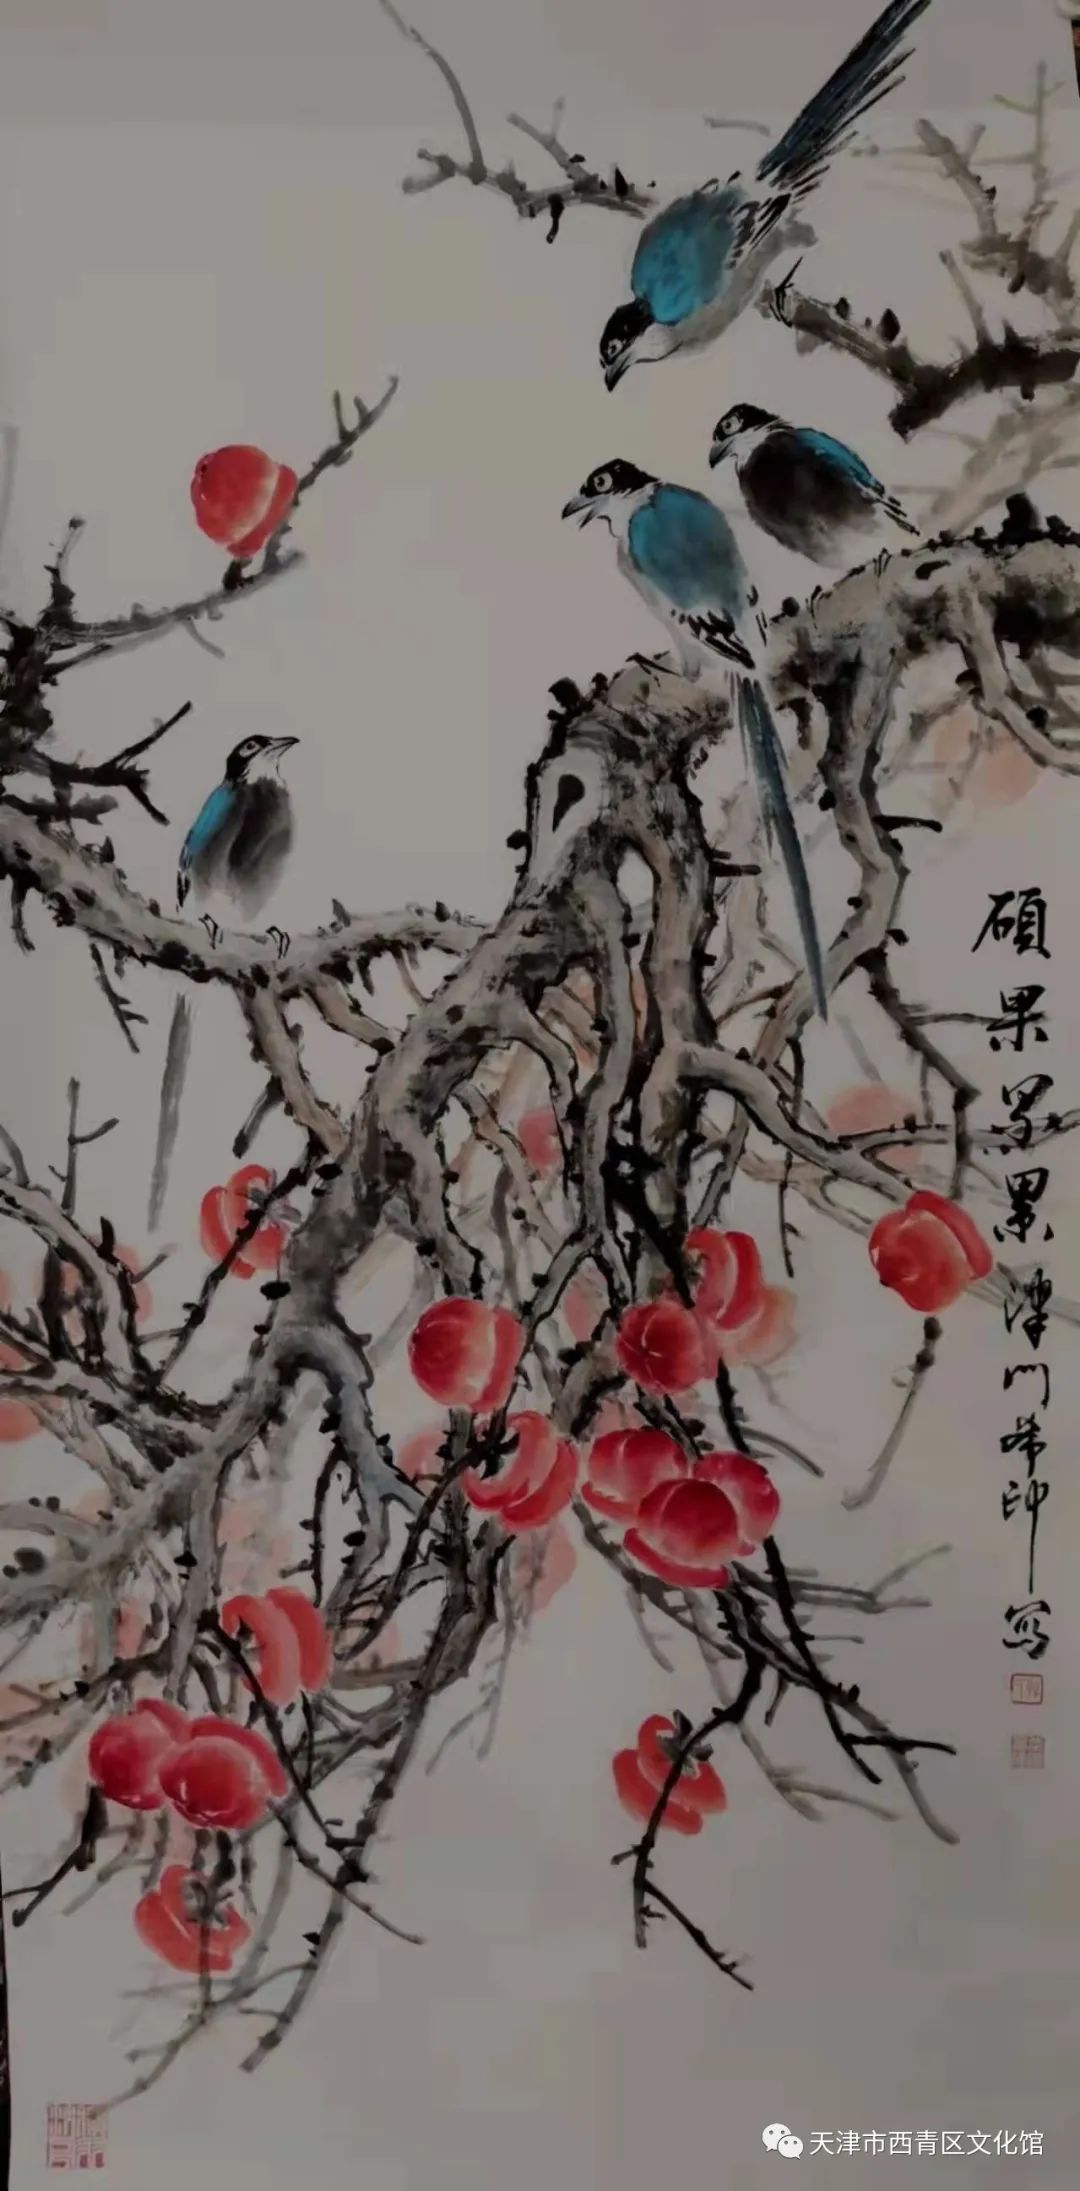 硕果累累 津门希印写
天津市西青区文化馆